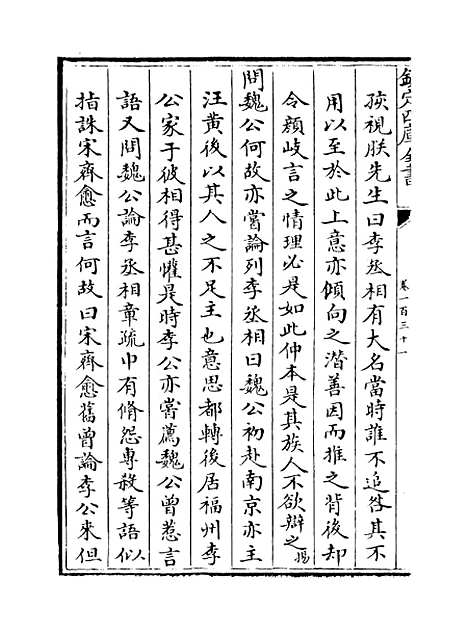 欽定四庫全書
卷一百三十一
孩視朕先生曰李丞相有大名當時誰不追咎其不
用以至於此上意亦傾向之潛善因而推之背後却
令顏岐言之情理必是如此仲本是其族人不欲辯之揚
問魏公何故亦嘗論列李丞相曰魏公初赴南京亦主
汪黄後以其人之不足主也意思都轉後居福州李
公家于彼相得甚懽是時李公亦嘗薦魏公曾惹言
語又問魏公論李丞相章疏中有脩怨專殺等語似
指誅宋齊愈而言何故曰宋齊愈舊曾論李公來但